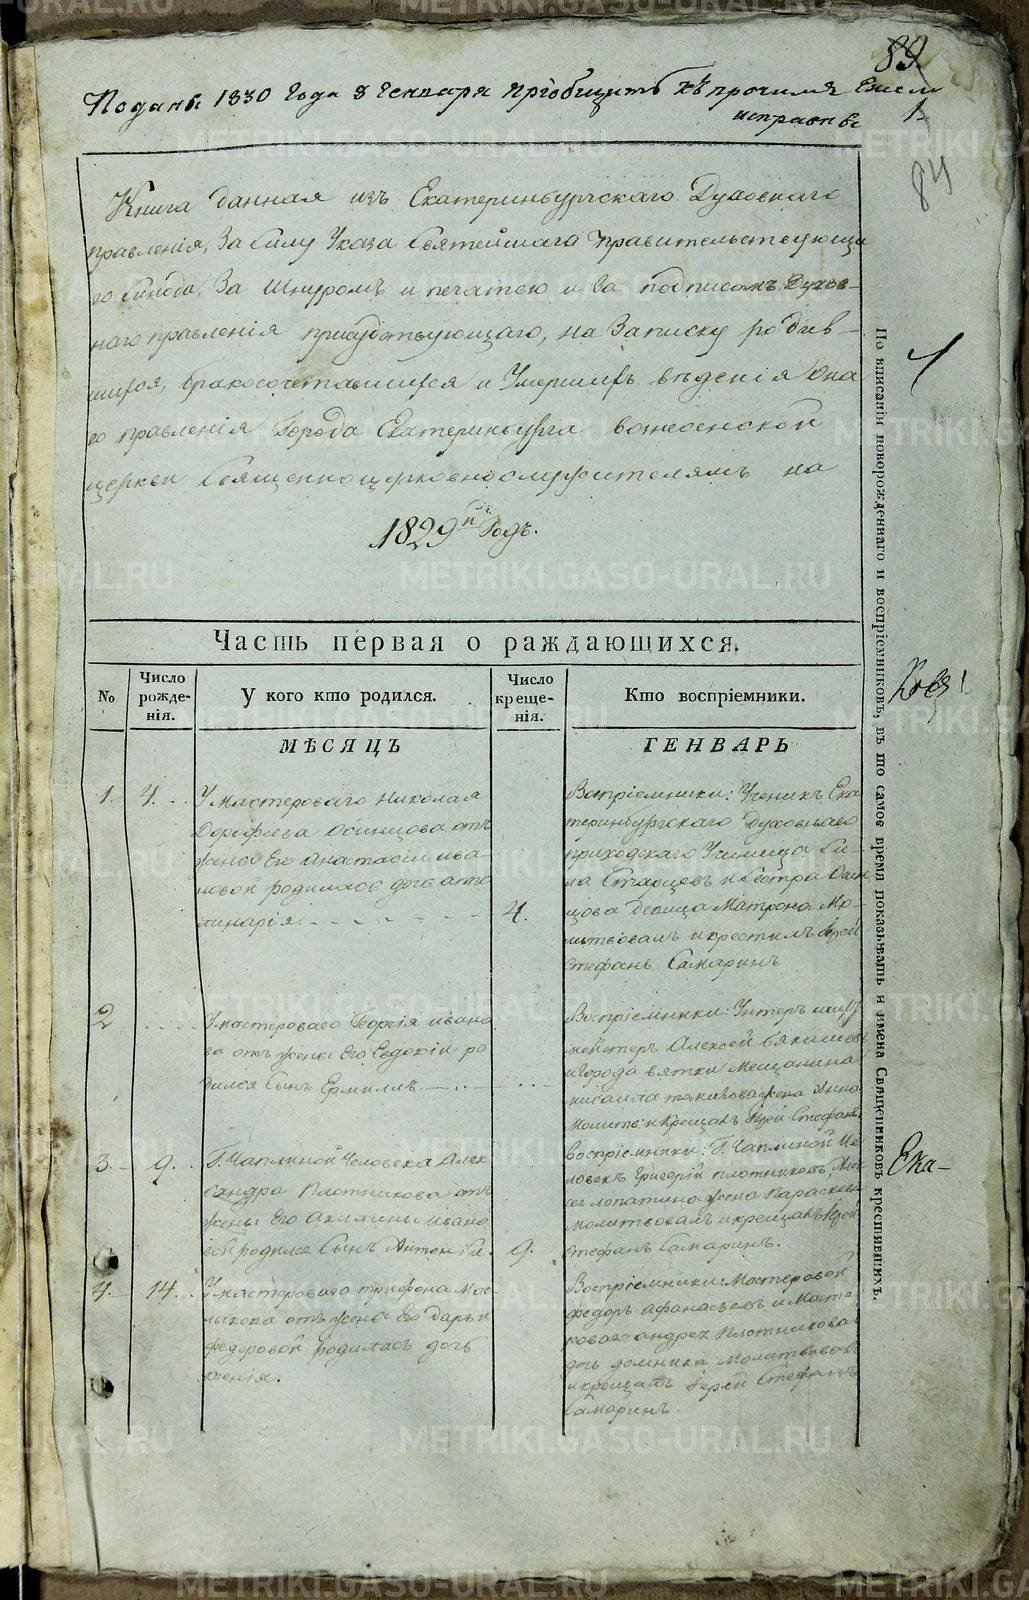 89.
Поданы 1830 Года 8 Генваря пріобщить къ прочимъ Если
исправны
1.
84
Книга данная изъ Екатеринбургскаго Духовнаго
правленія, За Силу Указа Святейшаго правительствующа
го Синода, За Шнуромъ и печатью и За подписомъ Духов-
наго правленія присудствующаго, на Записку родив-
шихся, бракосочетавшихся и Умершихъ вѣденія Она
го правленія Города Екатеринбурга вознесенской
церкви Священноцерковнослужителямъ на
1829й Годъ.
Часть первая о раждающихся.
№
Число рожде-нія.
У кого кто родился.
Число креще-нія.
Кто воспріемники.
МѢСЯЦЪ
ГЕНВАРЬ
1.
4.
У мастероваго Николая
Дорофеева Осинцова отъ
жены Его Анастасіи ива-
новой родилась дочь аппо
линарія.
4.
Воспріемники: Ученикъ Ека
теринбургскаго Духовнаго
приходскаго Училища Си-
ла Старцевъ и Сестра Осин
цова девица Матрона Мо-
литвовалъ и крестилъ Іерей
Стефанъ Самаринъ
2
У мастероваго Георгія ивано
ва отъ жены Его Евдокіи ро
дился Сынъ Ермилъ.
Воспріемники: Унтеръ
мейстеръ Алексей
и города вятки Мещанина
жена Анна
молитв: и Крещалъ Іерей Стефанъ
3.
9.
Г. Чаплиной Человека Алек
сандра Плотникова отъ
жены Его Акилины ивано
вой родился Сынъ Антоній.
9.
воспріемники: Г. Чаплиной че
ловекъ Григорій плотниковъ,
лопатина жена Параскева
молитвовалъ и крещалъ Іерей
Стефанъ Самаринъ.
4.
14.
У мастероваго трифона Мас-
лыкова отъ жены Его Дарьи
федоровой родилась дочь
ксенія.
Воспріемники: Мастеровой
федоръ афанасьевъ и Масте-
роваго андрея Плотникова
дочь домника молитвовалъ
и крещалъ Іерей Стефанъ
Самаринъ.
По вписаніи новорожденнаго и воспріемниковъ, въ то самое время показывать и имена Священниковъ крестившихъ.
Ека-
METRIKI.GASO-URAL.RU